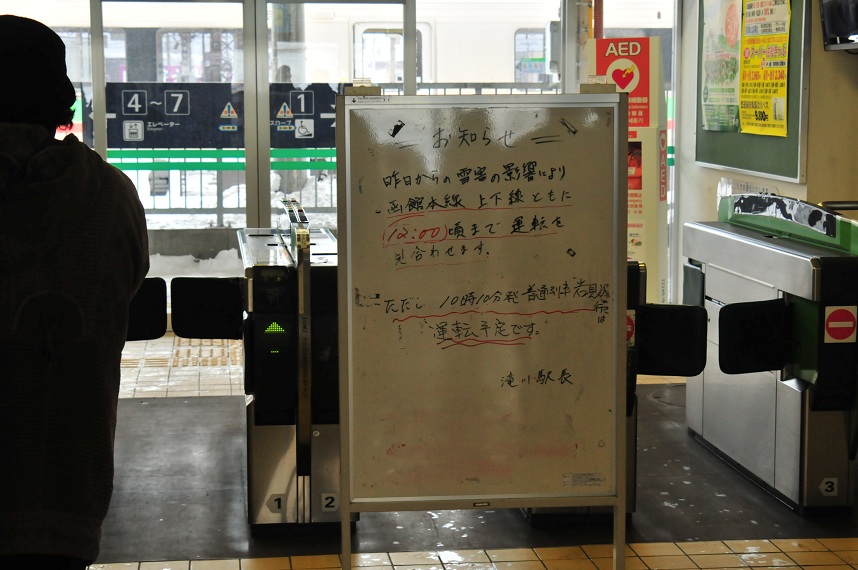 お知らせ
昨日からの雪害の影響により
函館本線 上下線ともに
(12:00)頃まで 運転を
見合わせます。
ただし 10時10分発 普通列車 岩見沢行は
運転予定です。
滝川駅長
4～7
エレベーター
1
スロープ
AED
AED
1
2
3